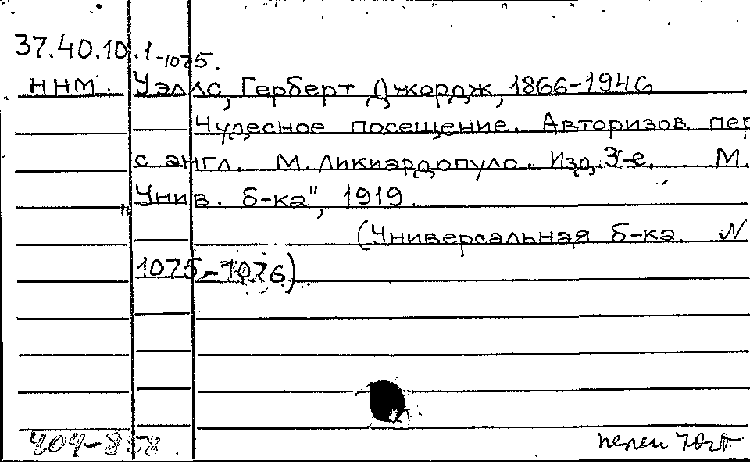 37.40.10.1-1075.
ННМ. Уэллс, Герберт Джордж, 1866-1946
Чудесное посещение. Авторизов. пер
с англ. М. Ликиардопуло. Изд. 3-е. М.
"Унив. б-ка", 1919.
(Универсальная б-ка. N
1075-1076)